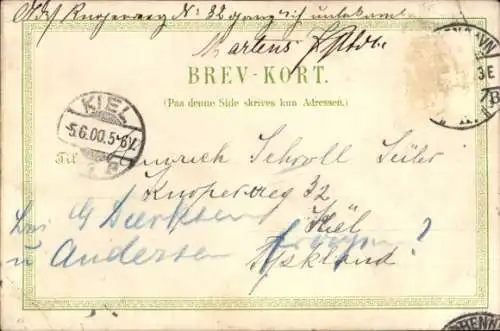 Auf Knooperweg № 32 gänzlich unbekannt
Martens
BREV-KORT.
(Paa denne Side skrives kun Adressen.)
KIEL
5.6.00.5-6V.
Til
Heinrich Schroll
Knooperweg 32
Kiel
Tyskland.
bei G
u Andersen fragen?